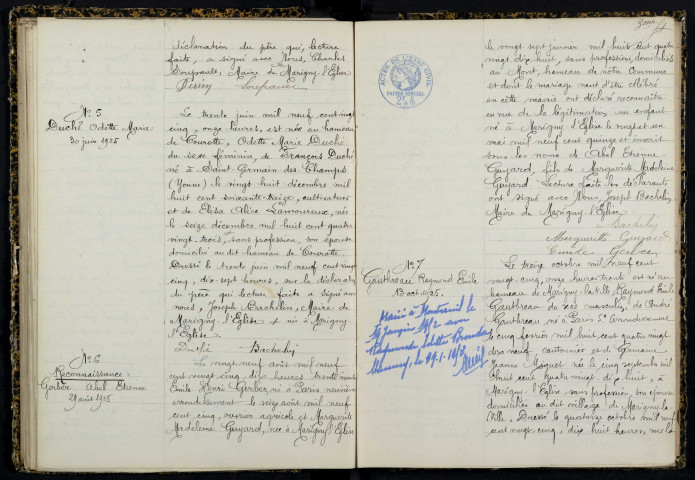 déclaration du père qui, lecture
faite, a signé avec Nous, Charles
Maire de Marigny l'Eglise
No 5
Duché Odette Marie
30 juin 1925
Le trente juin mil neuf cent vingt
cinq, onze heures, est née au hameau
de Courotte, Odette Marie Duché
du sexe féminin, de François Duché
né à Saint Germain des Champs
(Yonne) le vingt huit décembre mil
huit cent soixante-treize, cultivateur
et de Elisa Alice Lamoureux, née
le seize décembre mil huit cent quatre
vingt-trois, sans profession, son épouse
domiciliés au dit hameau de Courotte
Dressé le trente juin mil neuf cent vingt
cinq, dix sept heures, sur la déclaration
du père qui lecture faite a signé avec
nous, Joseph Bachelin, Maire de
Marigny l'Eglise
l'Eglise
Duché Bachelin
No 6
Reconnaissance
Gerber Abel Etienne
29 août 1925
Le vingt neuf août mil neuf
cent vingt cinq, dix heures trente
Emile Henri Gerber, né à Paris neuvième
arrondissement le seize août mil neuf
cent cinq, ouvrier agricole et Marguerite
Madeleine Guyard, née à Marigny l'Eglise
le vingt sept janvier mil huit cent quatre
vingt dix huit, sans profession, domiciliés
au Mont, hameau de notre Commune
et dont le mariage vient d'être célébré
en cette mairie ont déclaré reconnaître
en vue de la légitimation, un enfant
né à Marigny l'Eglise le vingt et un
mai mil neuf cent quinze et inscrit
sous les noms de Abel Etienne
Guyard, fils de Marguerite Madeleine
Guyard. Lecture faite les déclarants
ont signé avec Nous, Joseph Bachelin
Maire de Marigny l'Eglise
Bachelin
Marguerite Guyard
Emile Gerber
ACTES DE L'ETAT CIVIL
PAPIER SPECIAL
No 7
Gauthreau Raymond Emile
13 oct 1925
Marié à Montreuil le
avec
le 29.1.
Le treize octobre mil neuf cent
vingt cinq, onze heures trente est né au
hameau de Marigny-la-Ville Raymond Emile
Gauthreau du sexe masculin, de André
Gauthreau, né à Paris 5e arrondissement
le cinq février mil huit cent quatre vingt
dix neuf, cantonnier et de Germaine
Jeanne née le cinq septembre mil
huit cent quatre vingt dix huit, à
Marigny l'Eglise, sans profession, son épouse
domiciliés au dit village de Marigny la
Ville. Dressé le quatorze octobre mil neuf
cent vingt cinq, dix huit heures, sur la